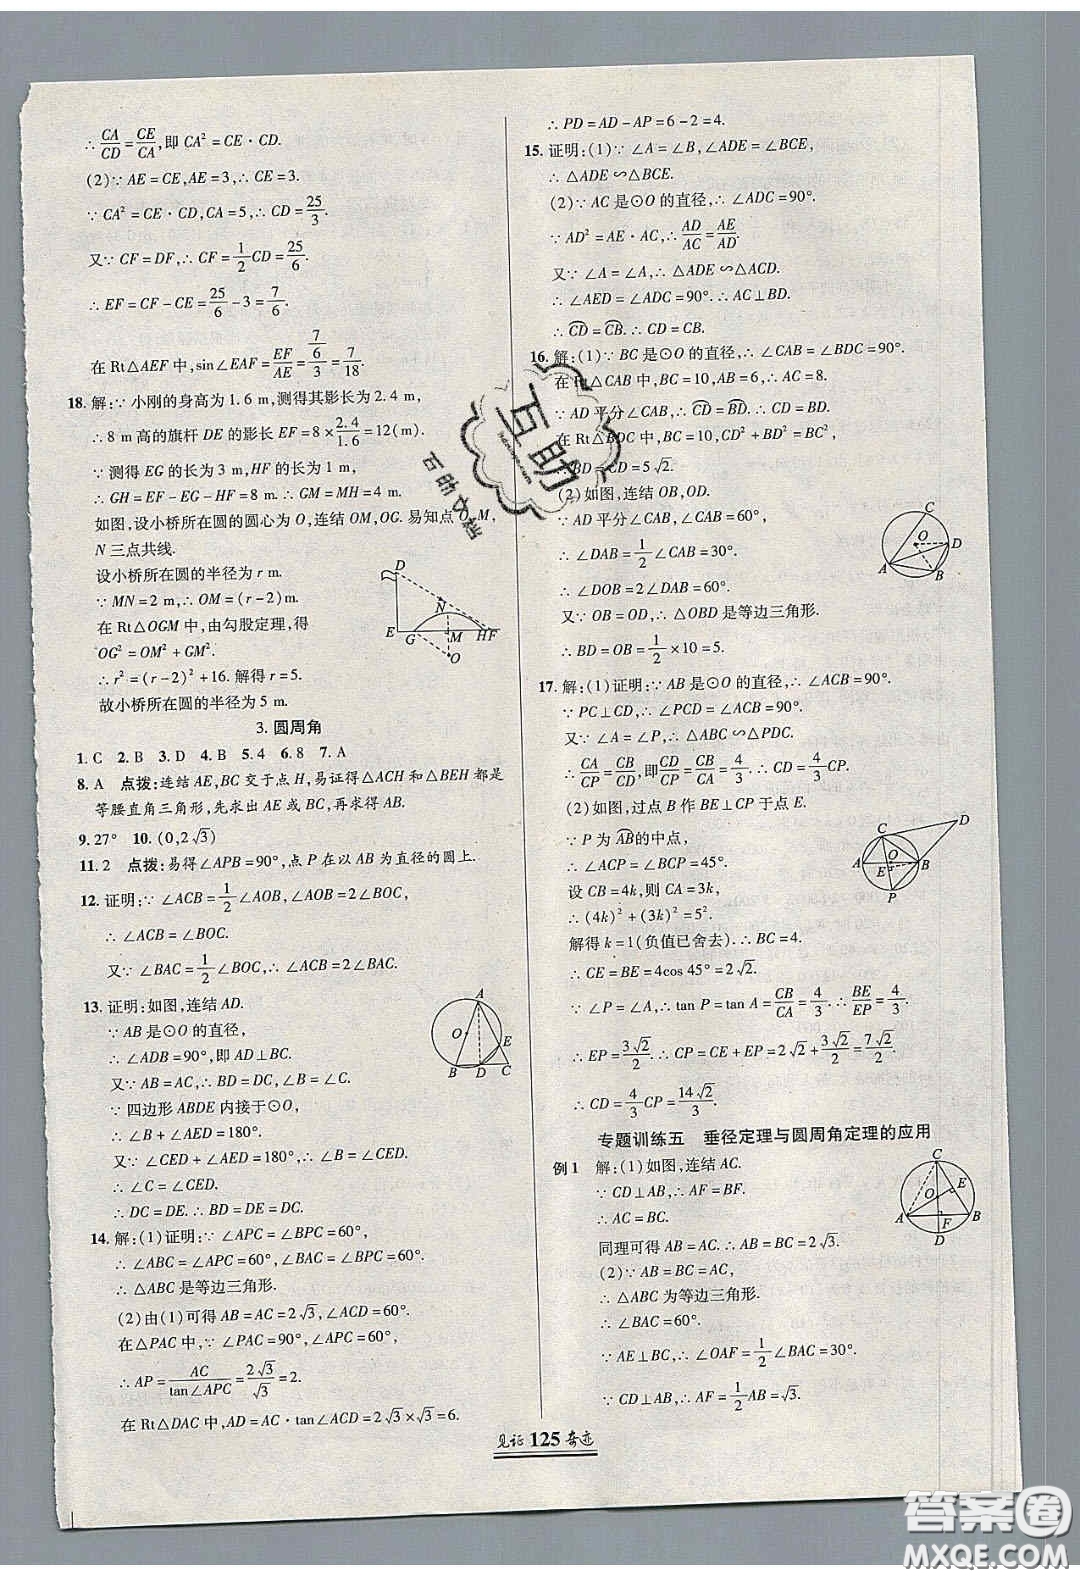 ∴ CA/CD = CE/CA, 即 CA² = CE · CD.
(2)∵ AE = CE, AE = 3, ∴ CE = 3.
∵ CA² = CE · CD, CA = 5, ∴ CD = 25/3.
又∵ CF = DF, ∴ CF = 1/2 CD = 25/6.
∴ EF = CF − CE = 25/6 − 3 = 7/6.
在 Rt△AEF 中, sin∠EAF = EF/AE = (7/6)/3 = 7/18.
18. 解:∵ 小刚的身高为 1.6 m, 测得其影长为 2.4 m,
∴ 8 m 高的旗杆 DE 的影长 EF = 8 × 2.4/1.6 = 12(m).
∵ 测得 EG 的长为 3 m, HF 的长为 1 m,
∴ GH = EF − EG − HF = 8 m. ∴ GM = MH = 4 m.
如图,设小桥所在圆的圆心为 O, 连结 OM, OG. 易知点 O, M,
N 三点共线.
设小桥所在圆的半径为 r m.
∵ MN = 2 m, ∴ OM = (r − 2) m.
在 Rt△OGM 中,由勾股定理,得
OG² = OM² + GM².
∴ r² = (r − 2)² + 16. 解得 r = 5.
故小桥所在圆的半径为 5 m.
D N E G M HF O
3. 圆周角
1. C 2. B 3. D 4. B 5. 4 6. 8 7. A
8. A 点拨:连结 AE, BC 交于点 H, 易证得△ACH 和△BEH 都是
等腰直角三角形,先求出 AE 或 BC, 再求得 AB.
9. 27° 10. (0, 2√3)
11. 2 点拨:易得∠APB = 90°, 点 P 在以 AB 为直径的圆上.
12. 证明:∵ ∠ACB = 1/2 ∠AOB, ∠AOB = 2∠BOC,
∴ ∠ACB = ∠BOC.
又∵ ∠BAC = 1/2 ∠BOC, ∴ ∠ACB = 2∠BAC.
13. 证明:如图,连结 AD.
∵ AB 是⊙O 的直径,
∴ ∠ADB = 90°, 即 AD⊥BC.
又∵ AB = AC, ∴ BD = DC, ∠B = ∠C.
∵ 四边形 ABDE 内接于⊙O,
∴ ∠B + ∠AED = 180°.
又∵ ∠CED + ∠AED = 180°,
∴ ∠B = ∠CED.
∴ ∠C = ∠CED.
∴ DC = DE. ∴ BD = DE = DC.
A O E B D C
14. 解:(1)证明:∵ ∠APC = ∠BPC = 60°,
∴ ∠ABC = ∠APC = 60°, ∠BAC = ∠BPC = 60°.
∴ △ABC 是等边三角形.
(2)由(1)可得 AB = AC = 2√3, ∠ACD = 60°.
在△PAC 中,∵ ∠PAC = 90°, ∠APC = 60°,
∴ AP = AC/tan∠APC = 2√3/√3 = 2.
在 Rt△DAC 中, AD = AC · tan∠ACD = 2√3 × √3 = 6.
∴ PD = AD − AP = 6 − 2 = 4.
15. 证明:(1)∵ ∠A = ∠B, ∠ADE = ∠BCE,
∴ △ADE∽△BCE.
(2)∵ AC 是⊙O 的直径, ∴ ∠ADC = 90°.
∵ AD² = AE · AC, ∴ AD/AC = AE/AD.
又∵ ∠A = ∠A, ∴ △ADE∽△ACD.
∴ ∠AED = ∠ADC = 90°. ∴ AC⊥BD.
∴ CD = CB. ∴ CD = CB.
16. 解:(1)∵ BC 是⊙O 的直径, ∴ ∠CAB = ∠BDC = 90°.
在 Rt△CAB 中, BC = 10, AB = 6, ∴ AC = 8.
∵ AD 平分∠CAB, ∴ CD = BD. ∴ CD = BD.
在 Rt△BDC 中, BC = 10, CD² + BD² = BC²,
∴ BD = CD = 5√2.
(2)如图,连结 OB, OD.
∵ AD 平分∠CAB, ∠CAB = 60°,
∴ ∠DAB = 1/2 ∠CAB = 30°.
∴ ∠DOB = 2∠DAB = 60°.
又∵ OB = OD, ∴ △OBD 是等边三角形.
∴ BD = OB = 1/2 × 10 = 5.
C O D A B
17. 解:(1)证明:∵ AB 是⊙O 的直径, ∴ ∠ACB = 90°.
∵ PC⊥CD, ∴ ∠PCD = ∠ACB = 90°.
又∵ ∠A = ∠P, ∴ △ABC∽△PDC.
∴ CA/CP = CB/CD, 即 CD/CP = CB/CA = 4/3. ∴ CD = 4/3 CP.
(2)如图,过点 B 作 BE⊥CP 于点 E.
∵ P 为 AB 的中点,
∴ ∠ACP = ∠BCP = 45°.
设 CB = 4k, 则 CA = 3k,
∴ (4k)² + (3k)² = 5².
解得 k = 1(负值已舍去). ∴ BC = 4.
∴ CE = BE = 4cos 45° = 2√2.
∵ ∠P = ∠A, ∴ tan P = tan A = CB/CA = 4/3. ∴ BE/EP = 4/3.
∴ EP = 3√2/2. ∴ CP = CE + EP = 2√2 + 3√2/2 = 7√2/2.
∴ CD = 4/3 CP = 14√2/3.
D C A O E B P
专题训练五 垂径定理与圆周角定理的应用
例 1 解:(1)如图,连结 AC.
∵ CD⊥AB, ∴ AF = BF.
∴ AC = BC.
同理可得 AB = AC. ∴ AB = BC.
(2)∵ AB = BC = AC,
∴ △ABC 为等边三角形.
∴ ∠BAC = 60°.
∵ AE⊥BC, ∴ ∠OAF = 1/2 ∠BAC = 30°.
∵ CD⊥AB, ∴ AF = 1/2 AB = √3.
C E O A F B D
见证 125 奇迹
互助
百助文档
答案圈
MXQE.COM